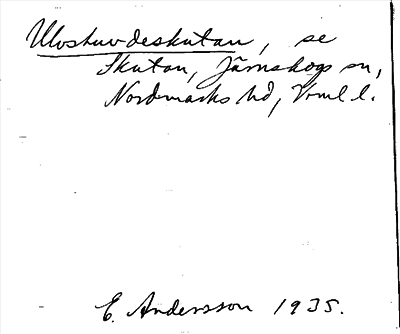 Ulvshuvdeskutan, se
Skutan, Järnskogs sn,
Nordmarks hd, Vrml l.
E. Andersson 1935.